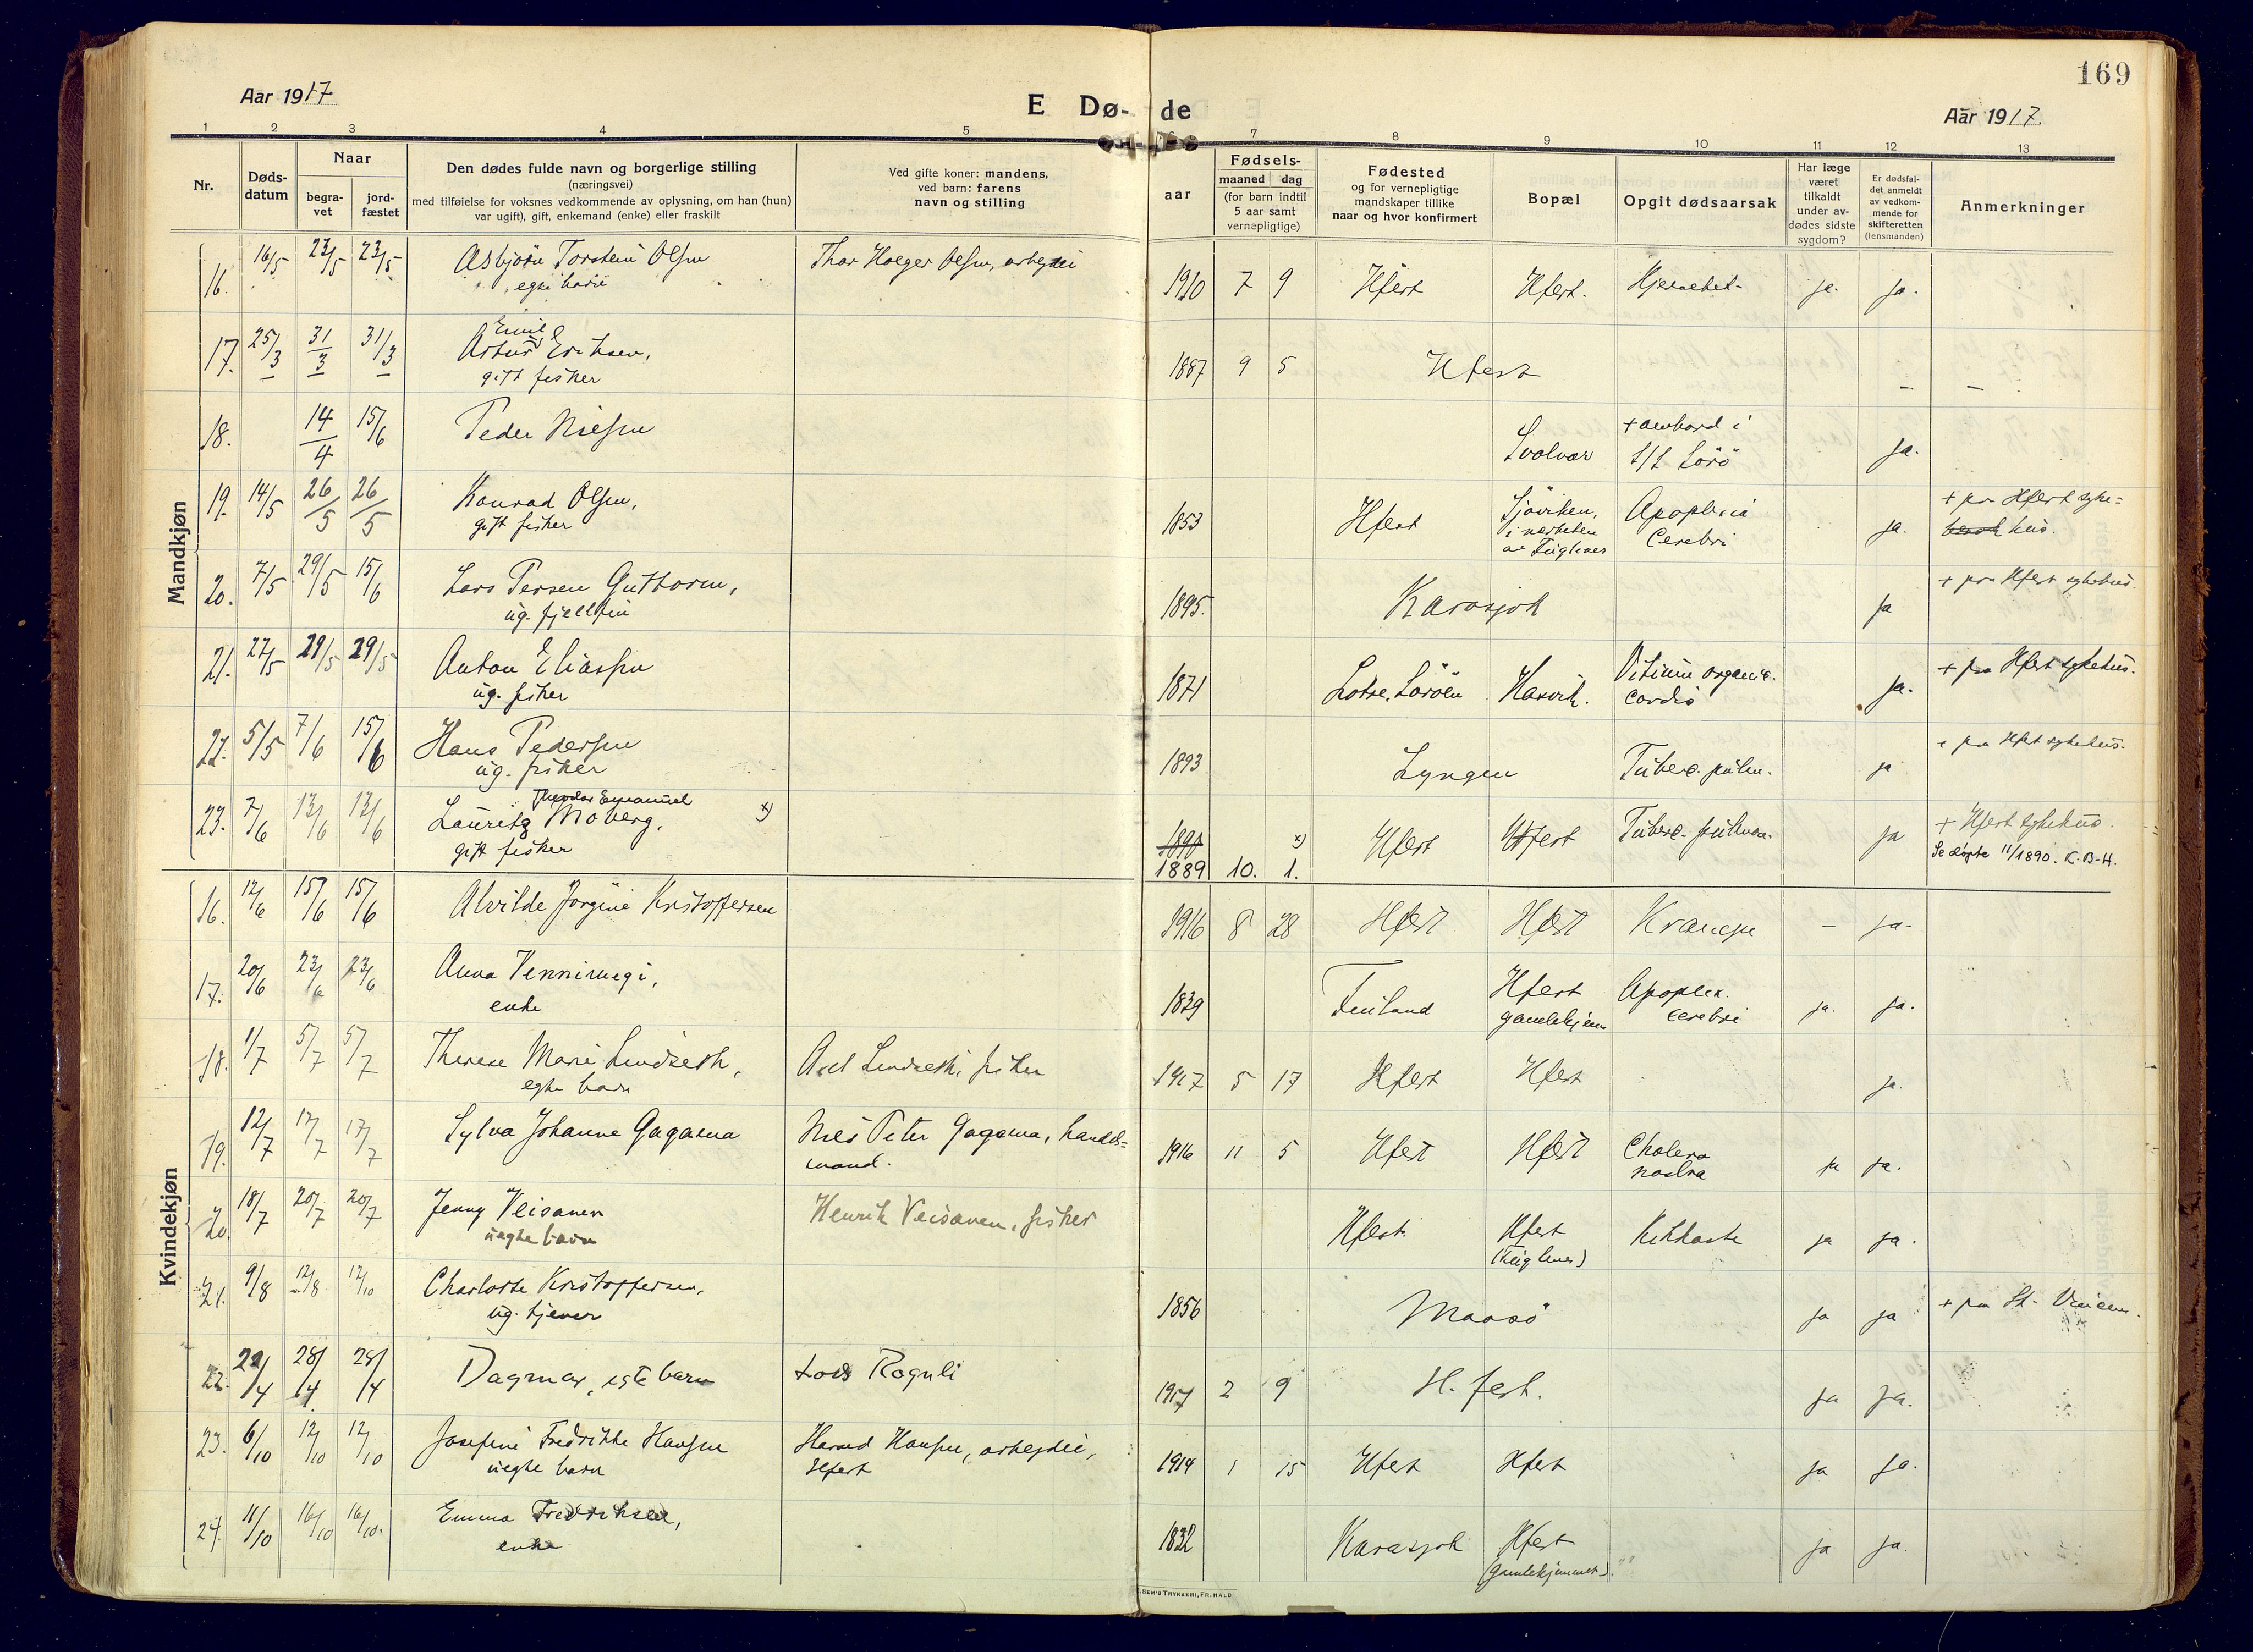 169
Aar 1917
E Dø- de
Aar 1917.
1 2 3 4 5 7 8 9 10 11 12 13
Nr.
Døds-
datum
Naar
begra-
vet
jord-
fæstet
Den dødes fulde navn og borgerlige stilling
(næringsvei)
med tilføielse for voksnes vedkommende av oplysning, om han (hun)
var ugift), gift, enkemand (enke) eller fraskilt
Ved gifte koner: mandens,
ved barn: farens
navn og stilling
Fødsels-
aar
maaned dag
(for barn indtil
5 aar samt
vernepligtige)
Fødested
og for vernepligtige
mandskaper tillike
naar og hvor konfirmert
Bopæl
Opgit dødsaarsak
Har læge
været
tilkaldt
under av-
dødes sidste
sygdom?
Er dødsfal-
det anmeldt
av vedkom-
mende for
skifteretten
(lensmanden)
Anmerkninger
Mandkjøn
16. 16/5 23/5 23/5 Asbjörn Torstein Olsen Thor Holger Olsen, arbeyder 1910 7 9 Hfest Hfest. ja. ja.
egte barn
17. 25/3 31/3 31/3 Emil
Artur Eriksen, 1887 9 5 Hfest — —
gift fisker
18. 14/4 15/6 Peder Nielsen Svolvær + ombord i ja.
S/S Sörö
19. 14/5 26/5 26/5 Konrad Olsen, 1853 Hfest Sjåviken, Apoplexia ja. + paa Hfest syke=
gift fisker i nærheten Cerebri hus.
av Fuglenes
20. 7/5 29/5 15/6 Lars Persen Guttorm, 1895. Karasjok ja + paa Hfest sykehus.
ug. fjellfin
21. 27/5 29/5 29/5 Anton Eliassen 1871 Söröen Hasvik. Vitium organic. ja. + paa Hfest sykehus.
ug. fisker cordis
22. 5/5 7/6 15/6 Hans Pedersen 1893 Lyngen Tuberc. pulm. ja + paa Hfest sykehus.
ug. fisker
23. 7/6 13/6 13/6 Theodor Emanuel
Lauritz Moberg, x) 1890 x) Hfest Hfest Tuberc. pulmon. ja + Hfest sykehus.
gift fisker 1889 10. 1. Se döpte 11/1890. K.B-H.
Kvindekjøn
16. 12/6 15/6 15/6 Alvilde Jörgine Kristoffersen 1916 8 28 Hfest Hfest Krampe — ja.
17. 20/6 23/6 23/6 Anna Vennivuegi, 1839 Finland Hfest Apoplex. ja. ja.
enke gamlehjem cerebri
18. 1/7 5/7 5/7 Therese Marie Lindseth, Axel Lindseth, fisker 1917 5 17 Hfest Hfest ja.
egte barn
19. 12/7 17/7 17/7 Sylva Johanne Gagama Nils Peter Gagama, handels= 1916 11 5 Hfest Hfest Cholera ja ja.
mand. nostra
20. 18/7 20/7 20/7 Jenny Veisanen Henrik Veisanen, fisker Hfest. Hfest Kikhoste ja ja.
uegte barn (Fuglenes)
21. 9/8 12/8 12/10 Charlotte Kristoffersen, 1856 Maasö ja ja + paa St. Vincens.
ug. tjener
22. 22/4 28/4 28/4 Dagmar, egte barn Roguli 1917 2 9 H.fest. ja ja.
23. 6/10 12/10 12/10 Josefine Fredrikke Hansen Harald Hansen, arbeyder, 1914 1 15 Hfest Hfest ja ja.
uegte barn Hfest
24. 11/10 16/10 16/10. Emma Fredriksen, 1832 Karasjok Hfest ja ja.
enke (gamlehjemmet).
SEM'S TRYKKERI, FR.HALD